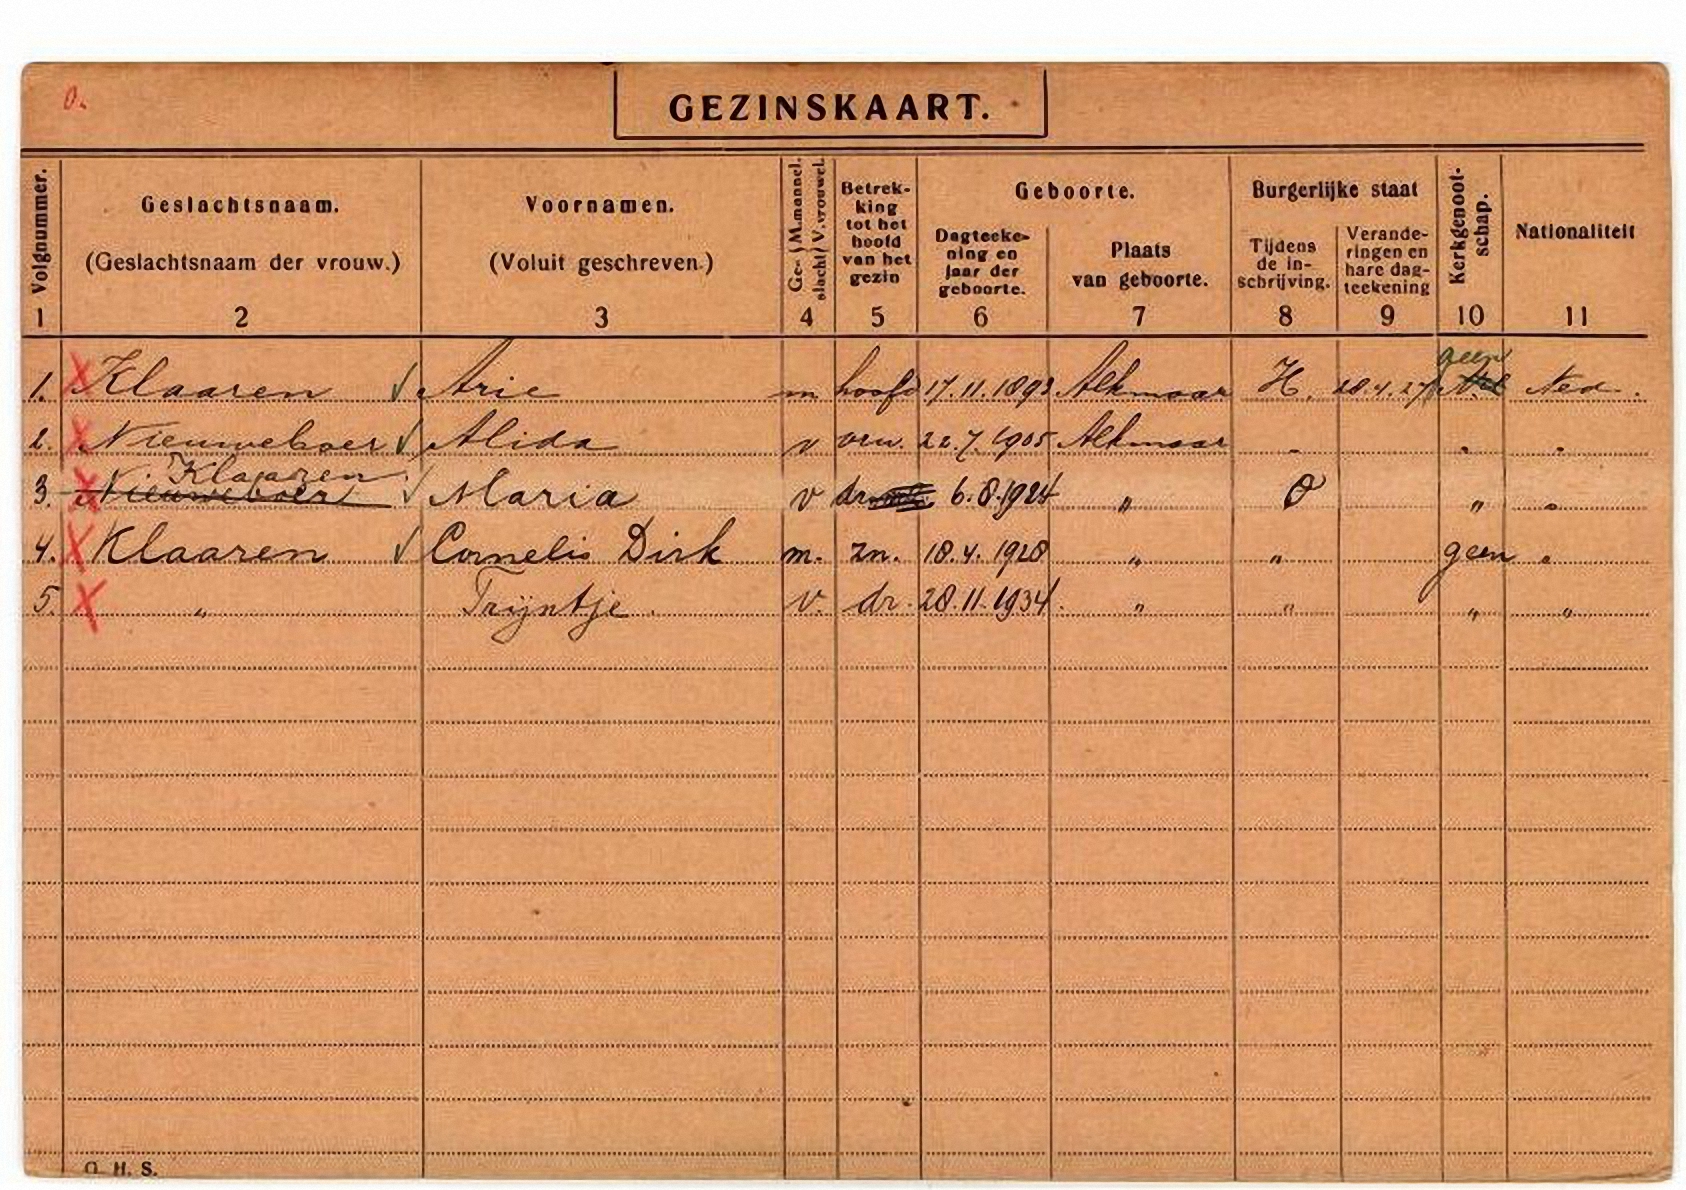 O.
GEZINSKAART.
Volgnummer.
1
Geslachtsnaam.
(Geslachtsnaam der vrouw.)
2
Voornamen.
(Voluit geschreven.)
3
Ge- slacht M. mannel. V. vrouwel.
4
Betrek-
king
tot het
hoofd
van het
gezin
5
Geboorte.
Dagteeke-
ning en
jaar der
geboorte.
6
Plaats
van geboorte.
7
Burgerlijke staat
Tijdens
de in-
schrijving.
8
Verande-
ringen en
hare dag-
teekening
9
Kerkgenoot-
schap.
10
Nationaliteit
11
geen
1. Klaaren Arie m hoofd 17.11.1893 Alkmaar H. 28.4.27 Ned.
2. Nieuweboer Alida v vrw. 22.7.1905 Alkmaar " " "
Klaaren
3. Nieuweboer Maria v dr 6.8.1924 " O " "
4. Klaaren Cornelis Dirk m. zn. 18.4.1928 " " geen "
5. " Trijntje. v. dr. 28.11.1934. " " " "
G. H. S.